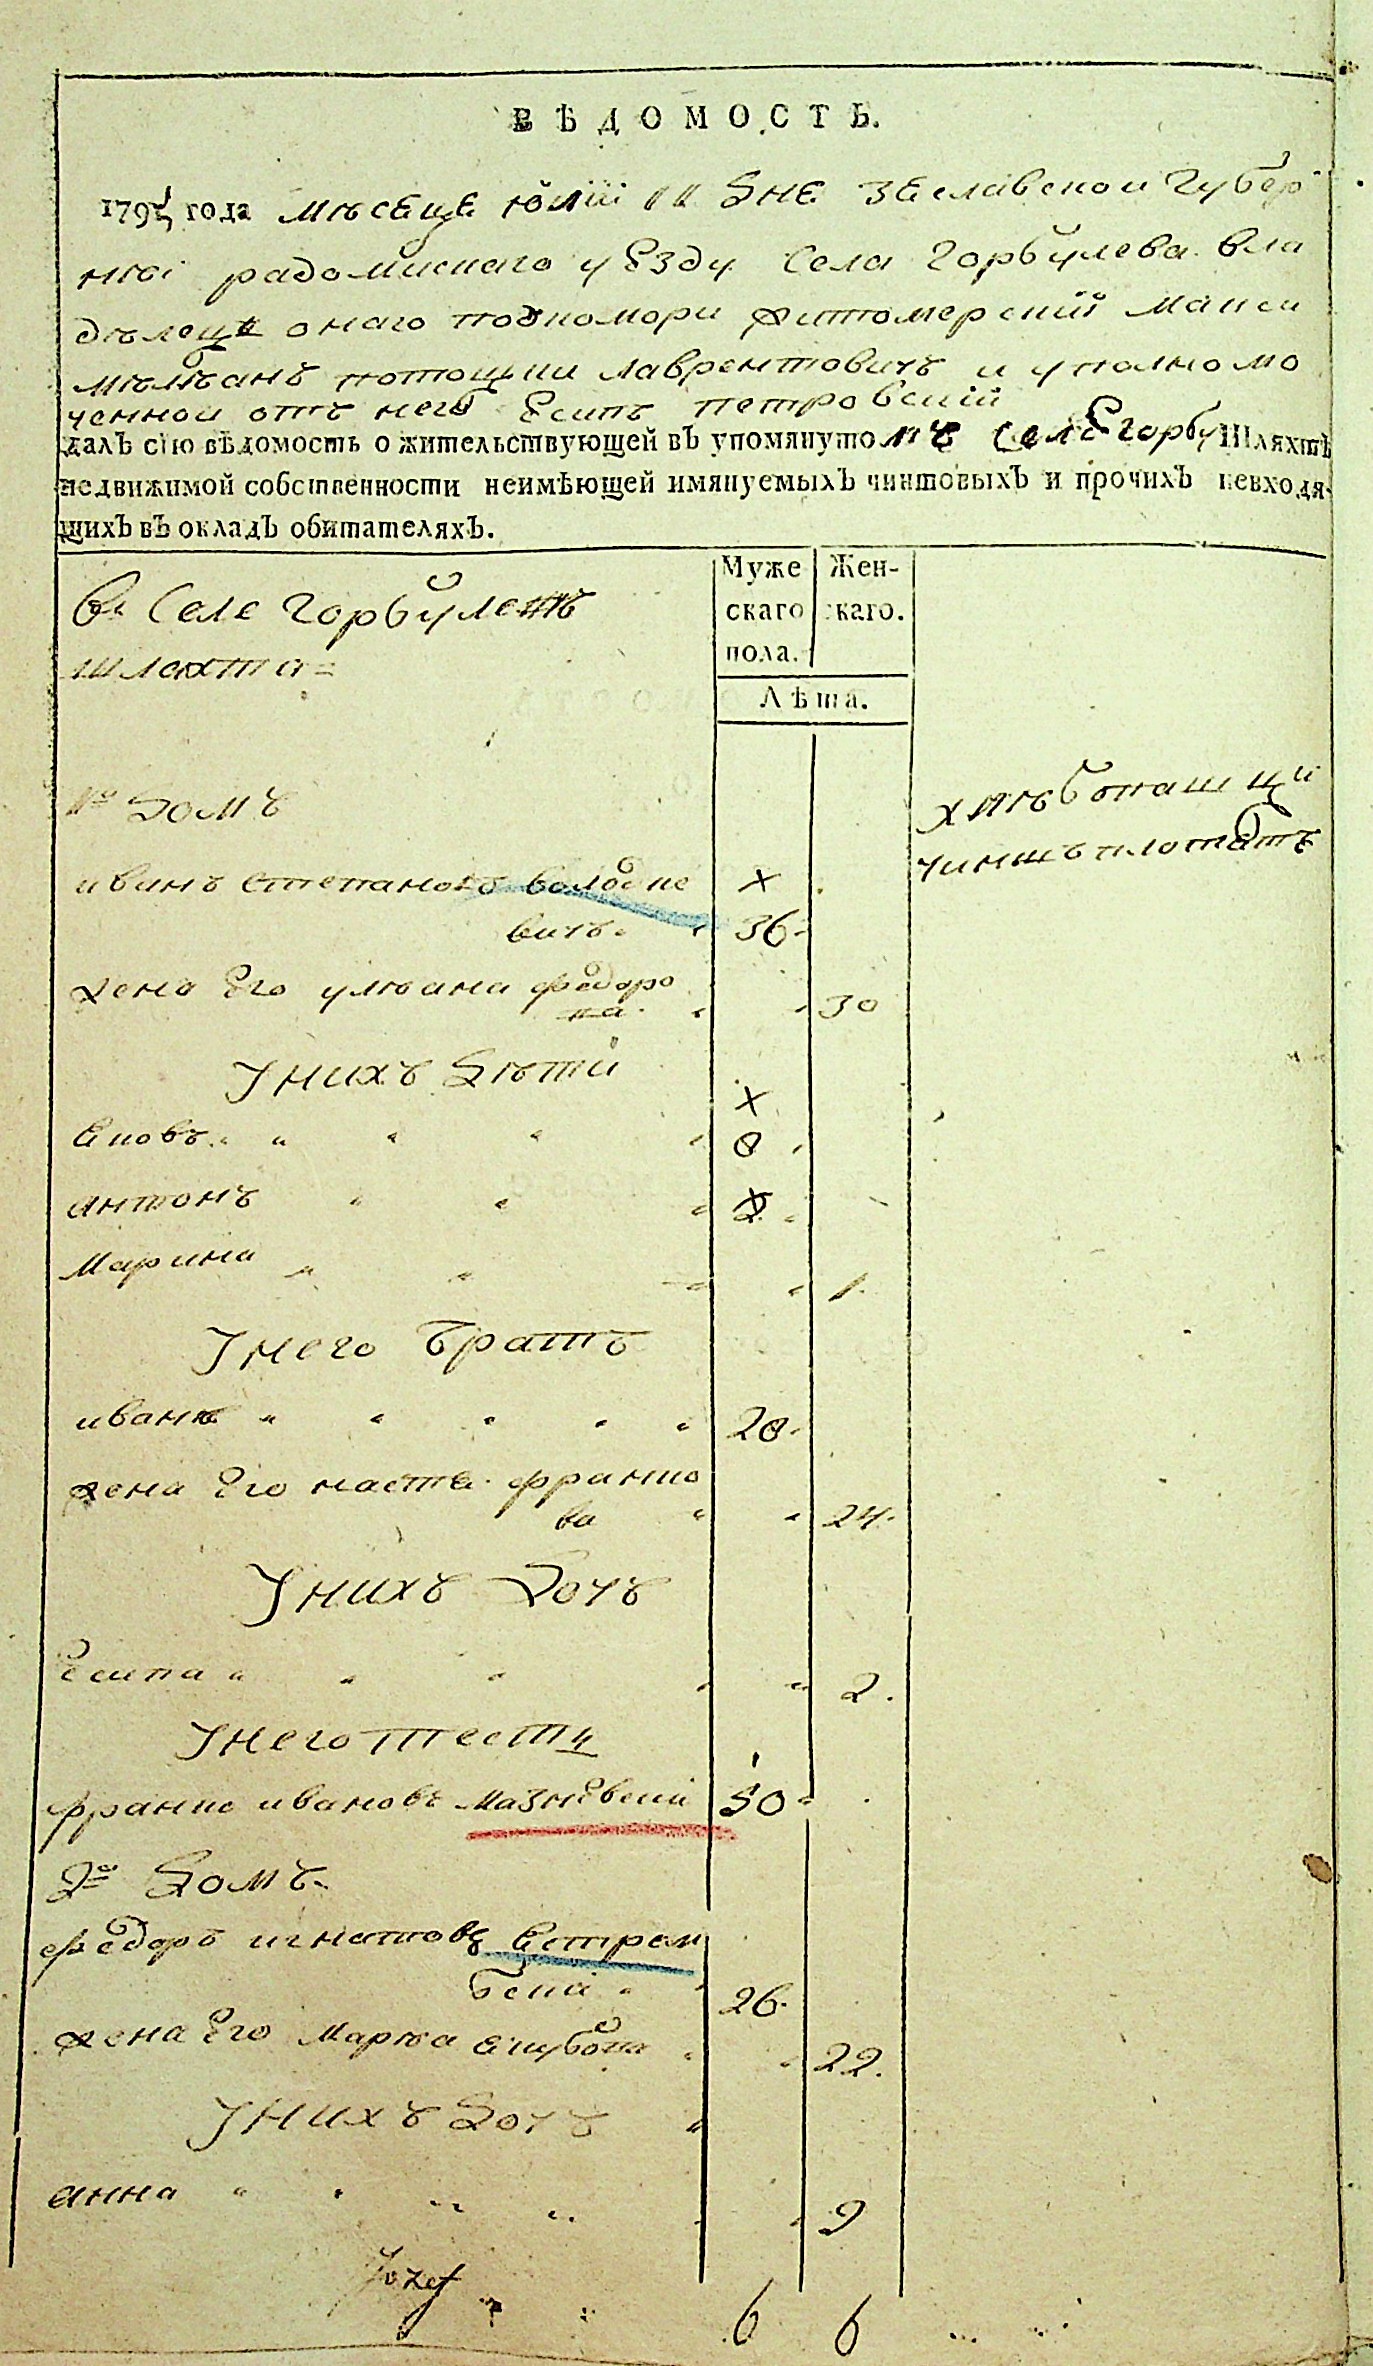 ВѢДОМОСТЬ.
1795 года мѣсеце юлиі 11 дне Зеславской Губер
ниі радомискаго уЕзду Села Горбулева вла
дѣлеца онаго подкомори житомерский макси
мѣлѣанъ потоцкии лаврентовичъ и уполномо
ченной отъ него Есипъ петровский
далЪ сію вѣдомость о жительствующей вЪ упомянутомъ селѣ Горбу Шляхтѣ
недвижимой собственности неимѣющей имянуемыхЪ чиншовыхЪ и прочихЪ невходя-
щихЪ вЪ окладЪ обитателяхЪ.
Муже Жен-
скаго скаго.
пола.
Лѣта.
въ Селе Горбулевѣ
шляхта =
1й домъ
хлѣбопашци
чиншъ плотятъ
иванъ степановъ володке
вичъ. 36.
жена Его улѣана федоро
ва. 30
Унихъ дѣти
Яковъ 8
антонъ 2
Марина 1.
Унего братъ
иванъ 28.
жена Его настя франко
ва 24.
Унихъ дочъ
Есипа 2.
Унего тесть
франко ивановъ мазневский 50
2й домъ.
федоръ игнатовъ Ястрем
бский 26.
жена Его Марѣа якубова 22.
Унихъ дочъ
анна 2
Jozef
6 6